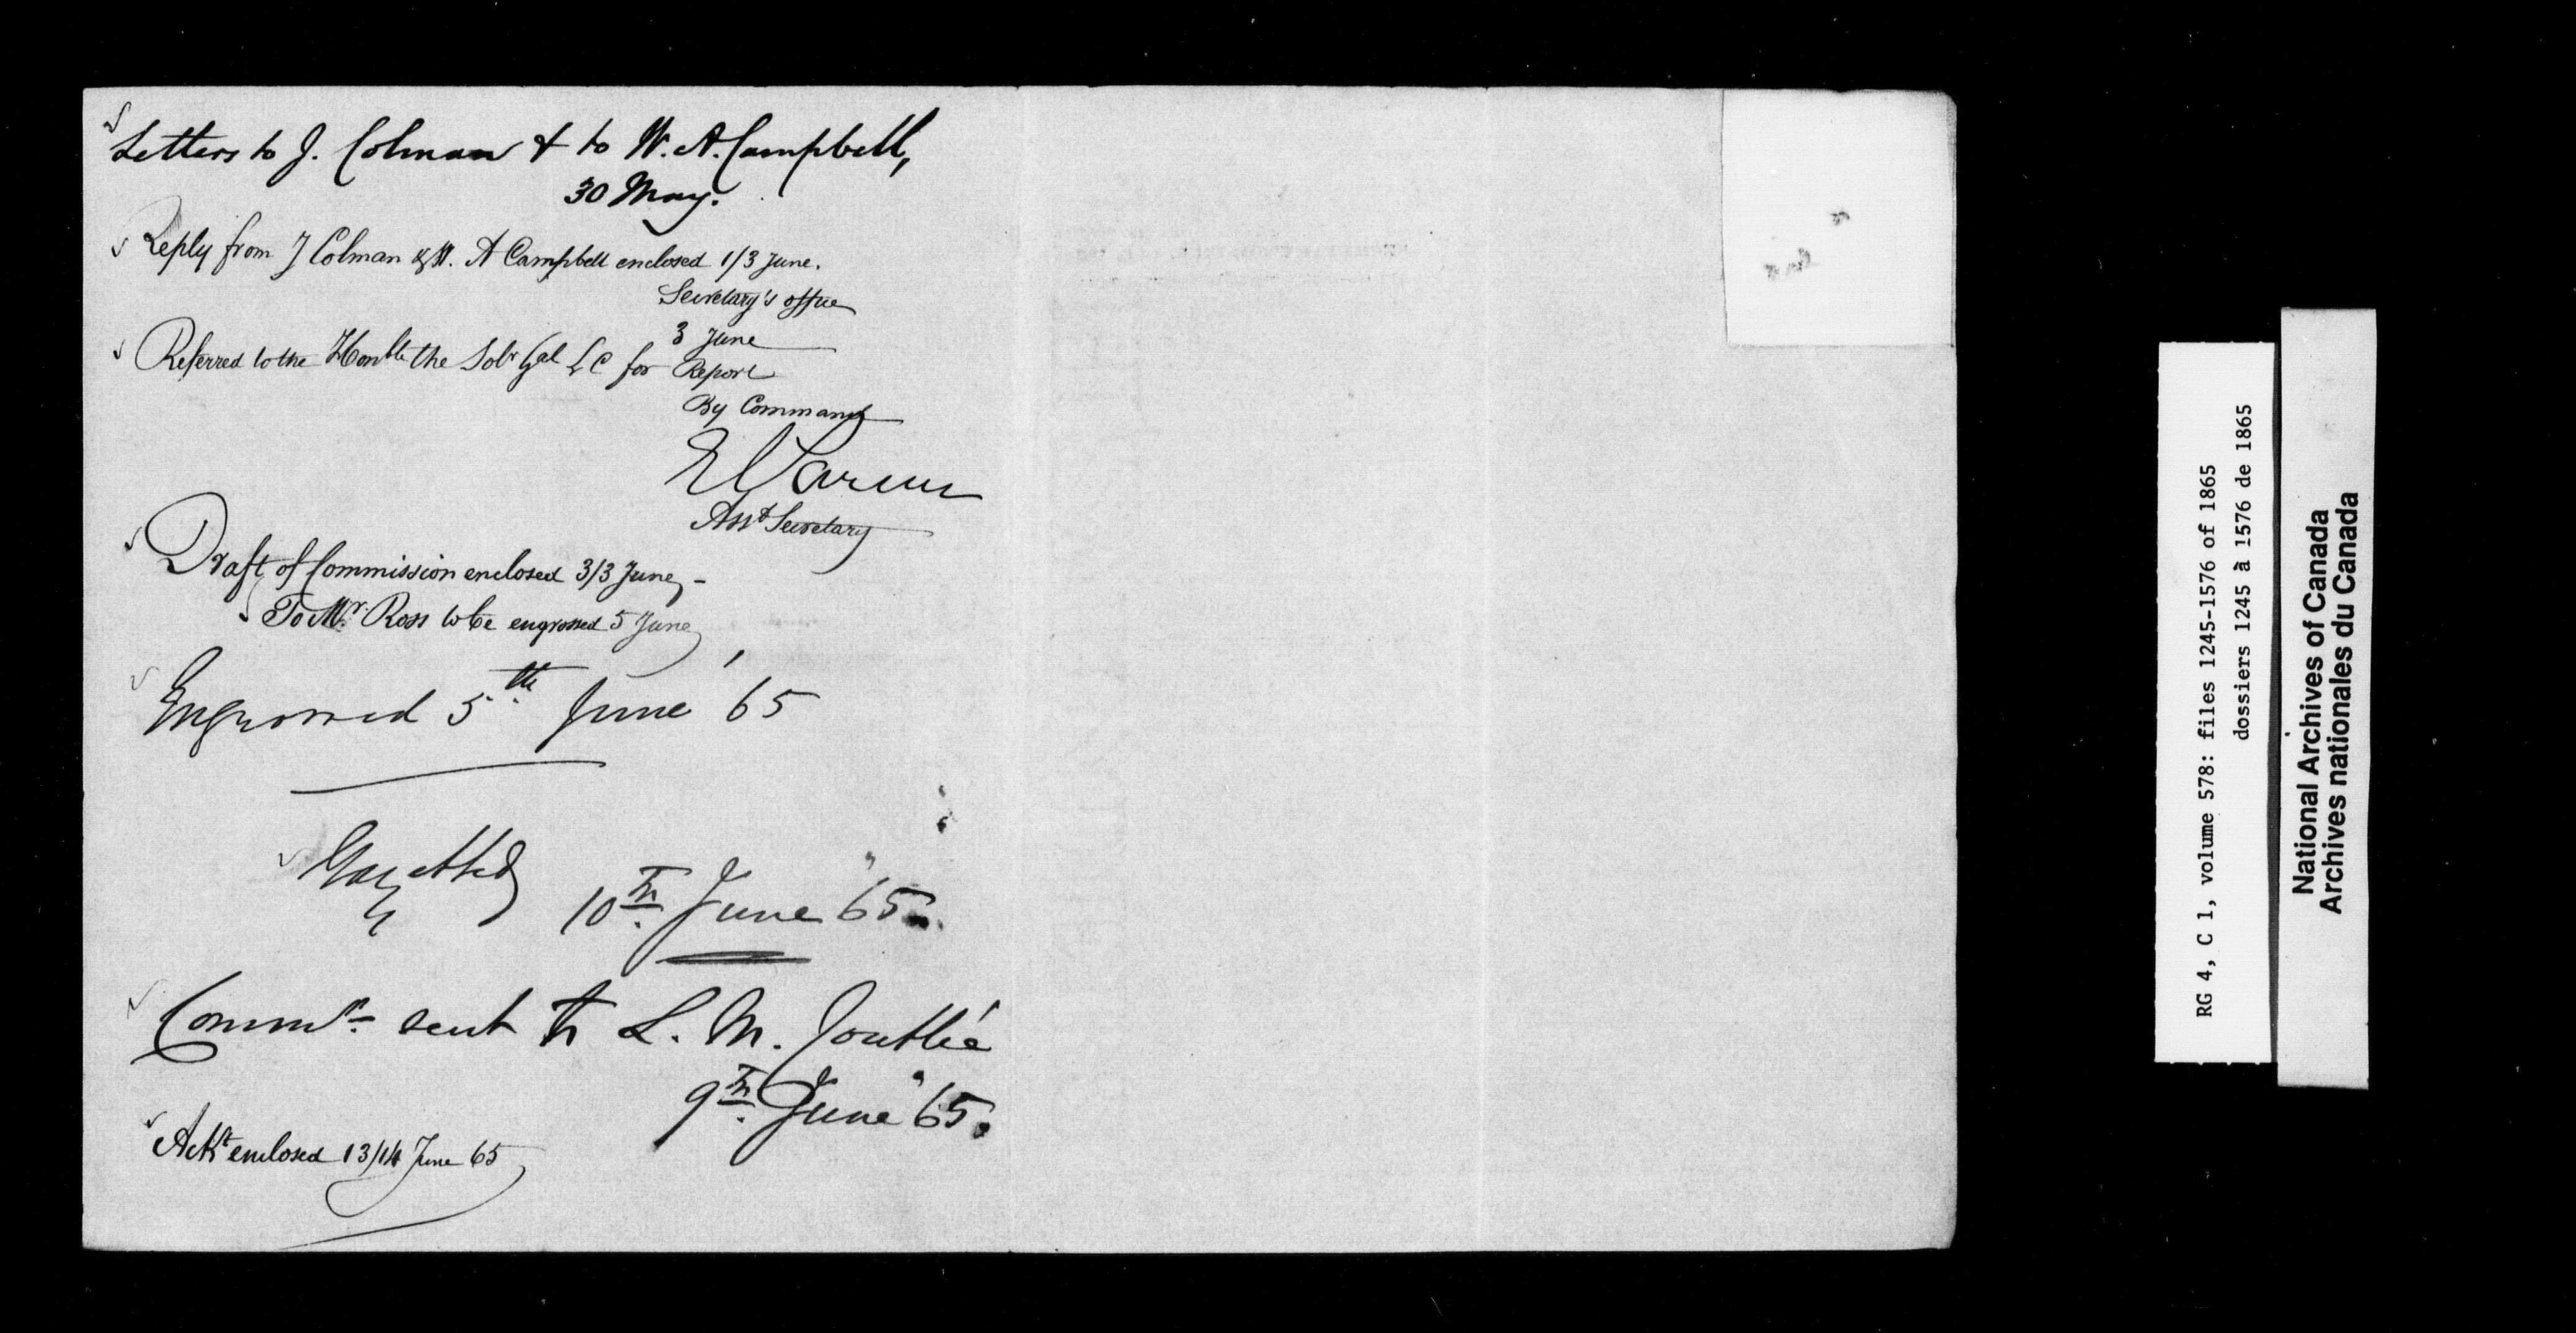 Letters to J. Colman & to W. A. Campbell,
30 May.
Reply from J Colman & W. A Campbell enclosed 1/3 June.
Secretary's office
3 June
Referred to the Honble the Solr Gal L C for Report
By Command
E Parent
Asst Secretary
Draft of Commission enclosed 3/3 June, -
To Mr. Ross to be engrossed 5 June
Engrossed 5th June '65
Gazetted
10th June '65.
Commn sent to L. M. Coutlée
9th June '65.
Ackt enclosed 13/14 June 65
RG 4, C 1, volume 578: files 1245-1576 of 1865
dossiers 1245 à 1576 de 1865
National Archives of Canada
Archives nationales du Canada